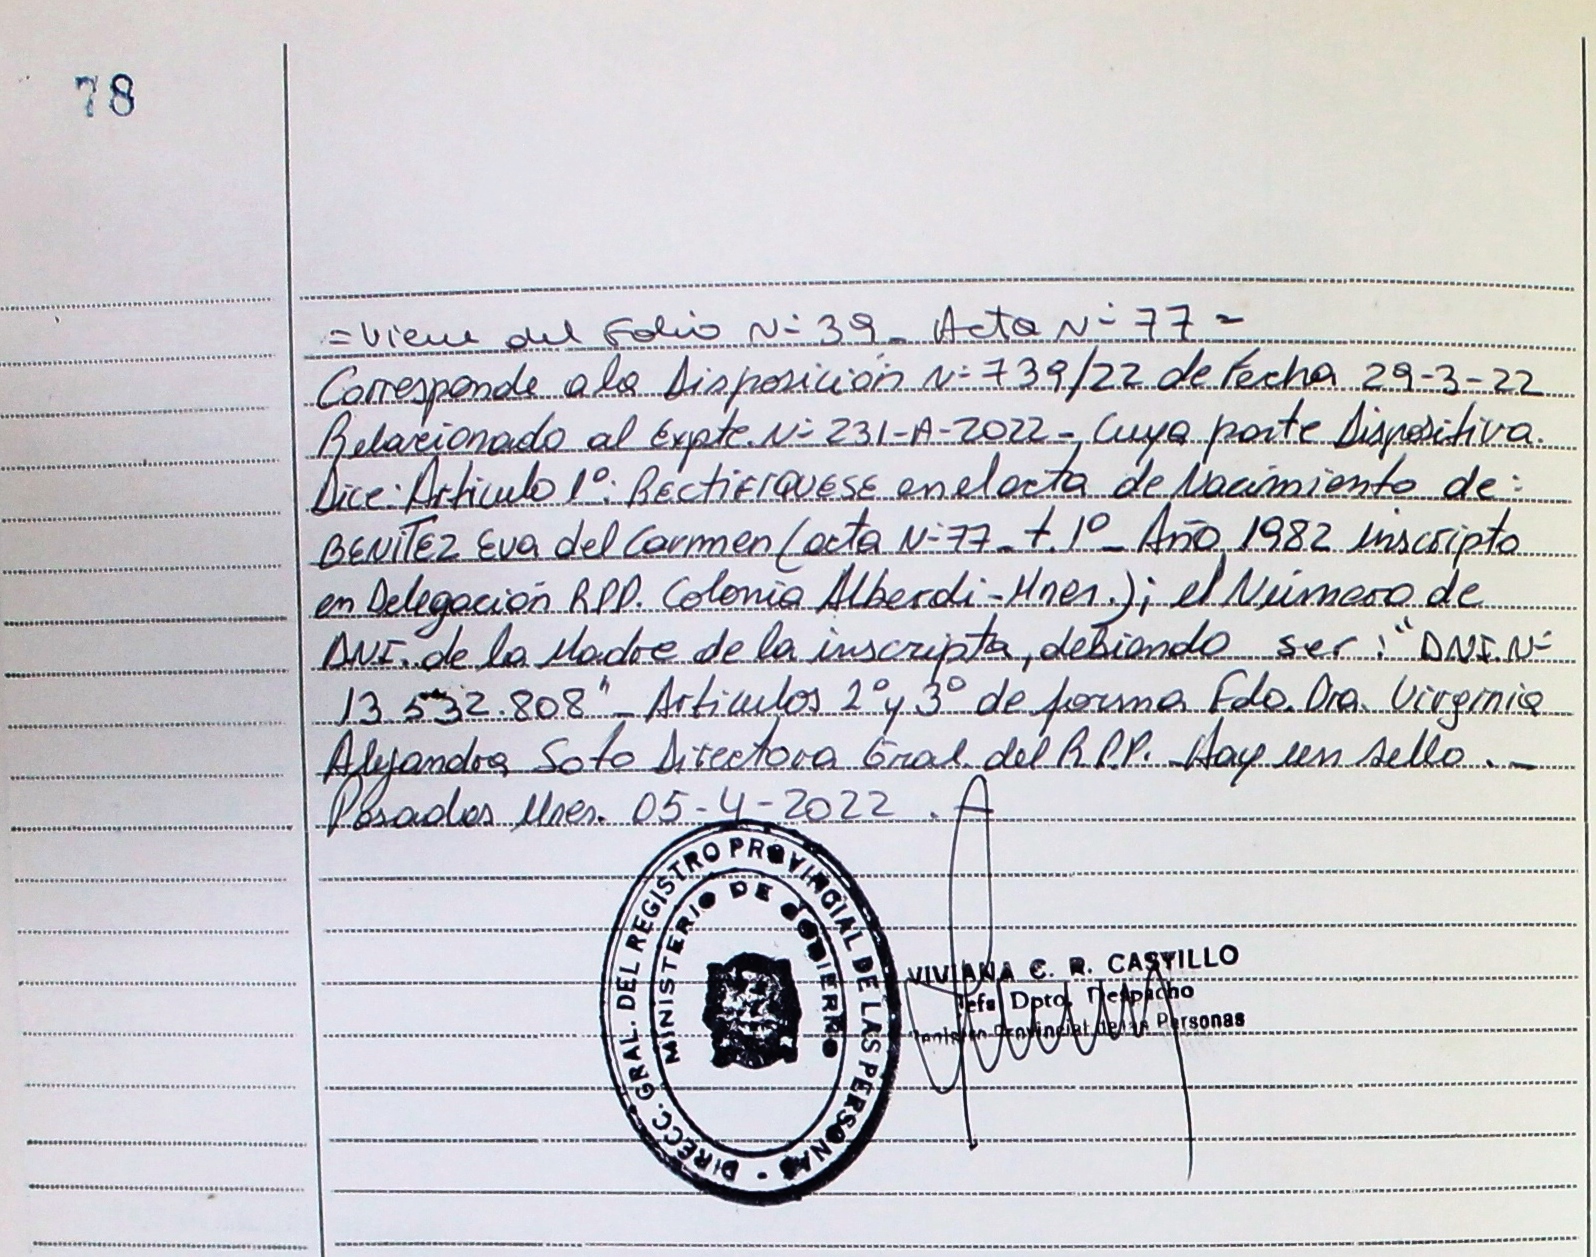 78
=Viene del Folio Nº 39_ Acta Nº 77=
Corresponde a la Disposición Nº 739/22 de Fecha 29-3-22
Relacionado al Expte. Nº 231-A-2022-, Cuya parte Dispositiva.
Dice: Articulo 1º: RECTIFIQUESE en el acta de Nacimiento de:
BENITEZ Eva del Carmen (acta Nº 77_ t. 1º_ Año 1982 inscripto
en Delegación RPP. Colonia Alberdi-Mnes.); el Número de
DNI. de la Madre de la inscripta, debiendo ser: "DNI. Nº
13.532.808"_ Articulos 2º y 3º de forma Fdo. Dra. Virginia
Alejandra Soto Directora Gral. del R.P.P. _Hay un sello. _
Posadas Mnes. 05-4-2022.
DIRECC. GRAL. DEL REGISTRO PROVINCIAL DE LAS PERSONAS -
MINISTERIO DE GOBIERNO
VIVIANA C. R. CASTILLO
Jefa Dpto. Despacho
Provincial de las Personas